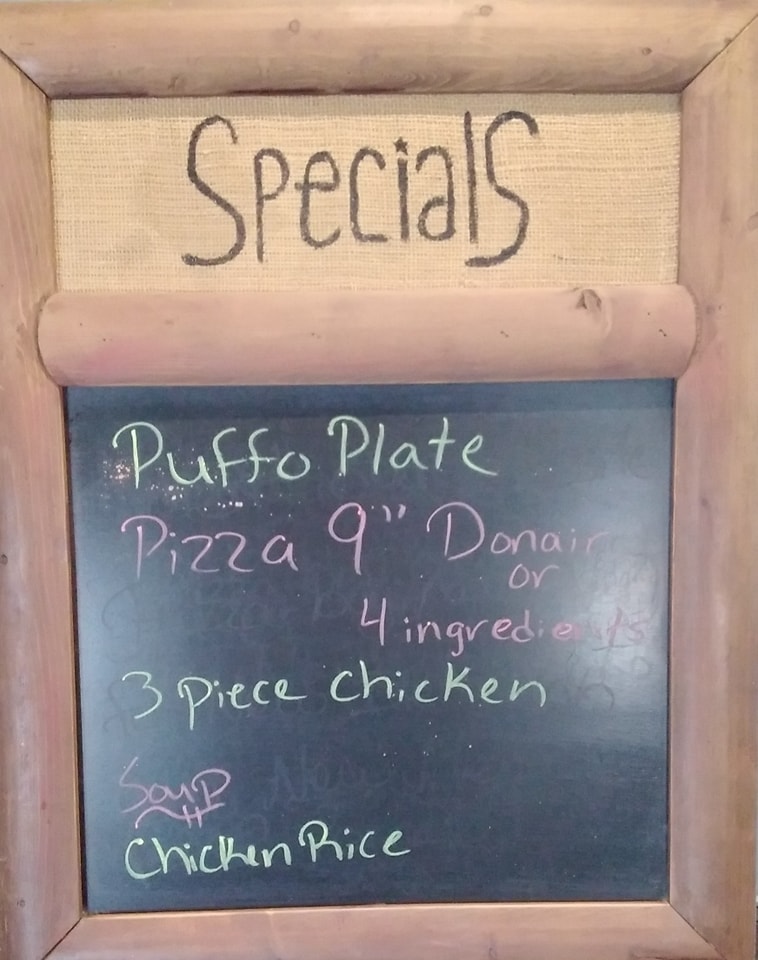 Specials
Puffo Plate
Pizza 9" Donair
or
4 ingredients
3 piece chicken
Soup
Chicken Rice